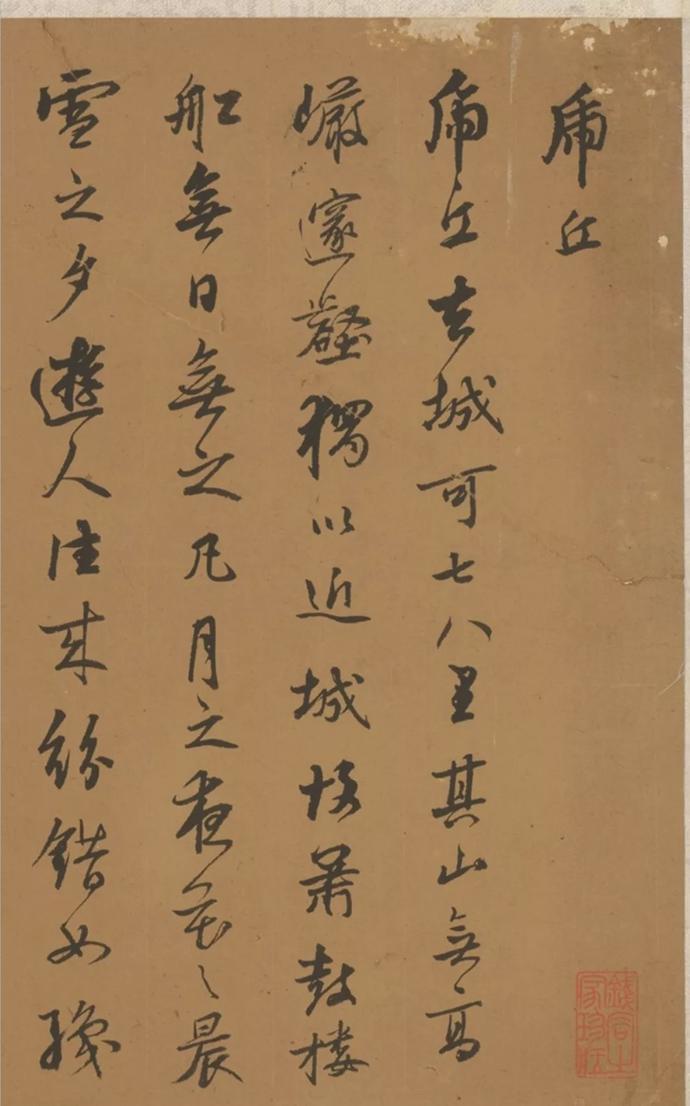 虎丘
虎丘去城可七八里其山無高
巖邃壑獨以近城故蕭鼓樓
舡無日無之凡月之夜花之晨
雪之夕遊人往來紛錯如織